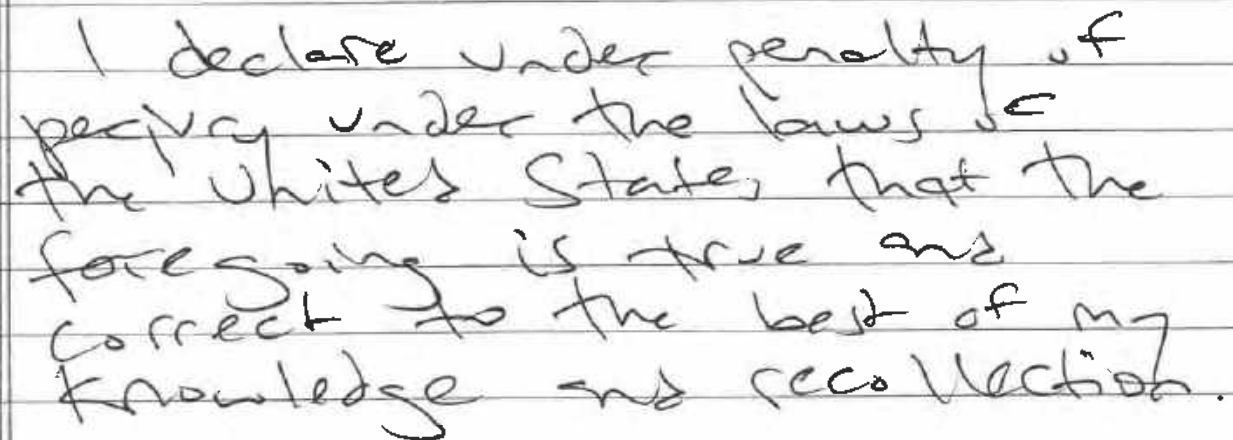 I declare under penalty of
perjury under the laws of
the United States that the
foregoing is true and
correct to the best of my
knowledge and recollection.